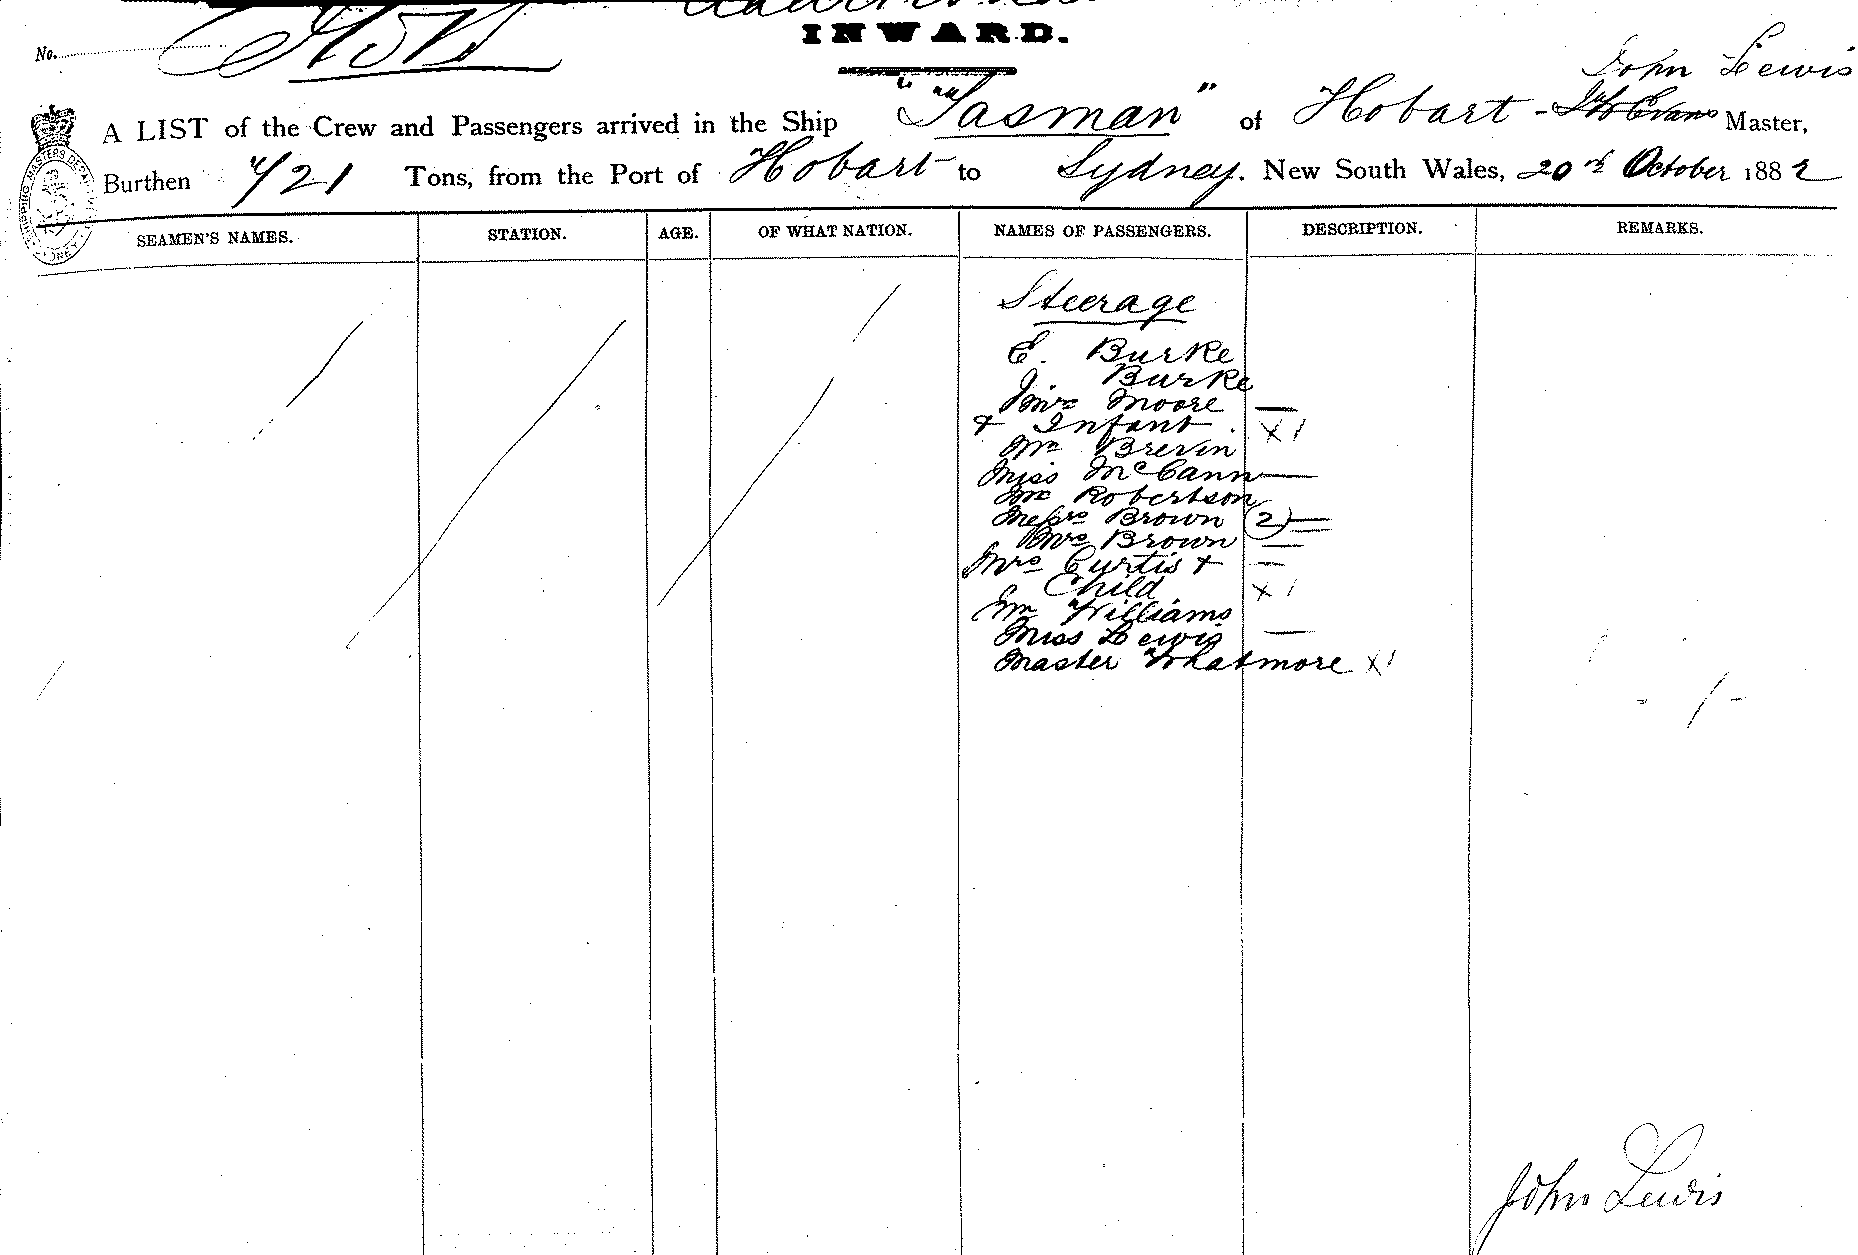 INWARD.
No.
John Lewis
A LIST of the Crew and Passengers arrived in the Ship "Tasman" of Hobart - Master,
Burthen 421 Tons, from the Port of Hobart to Sydney. New South Wales, 20th October 1882
SEAMEN'S NAMES. STATION. AGE. OF WHAT NATION. NAMES OF PASSENGERS. DESCRIPTION. REMARKS.
Steerage
E. Burke
J. Burke
Mrs Moore —
+ Infant X1
Mr Brevin
Miss McCann —
Mr Robertson
Messrs Brown (2) —
Mrs Brown —
Mrs Curtis + —
Child X1
Mr Williams
Miss Lewis —
Master Whatmore X1
John Lewis